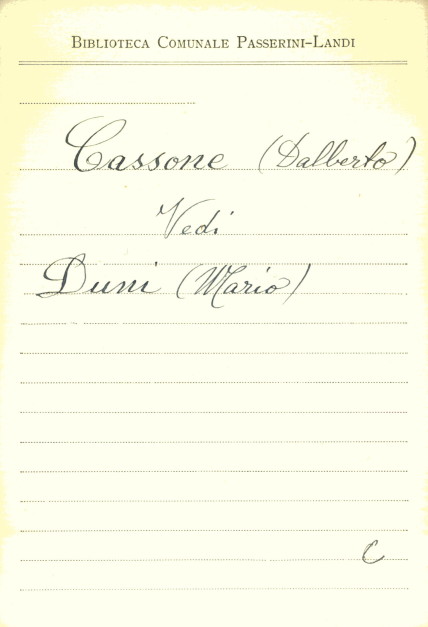 Biblioteca Comunale Passerini-Landi
Cassone (Dalberto)
Vedi
Duni (Mario)
C